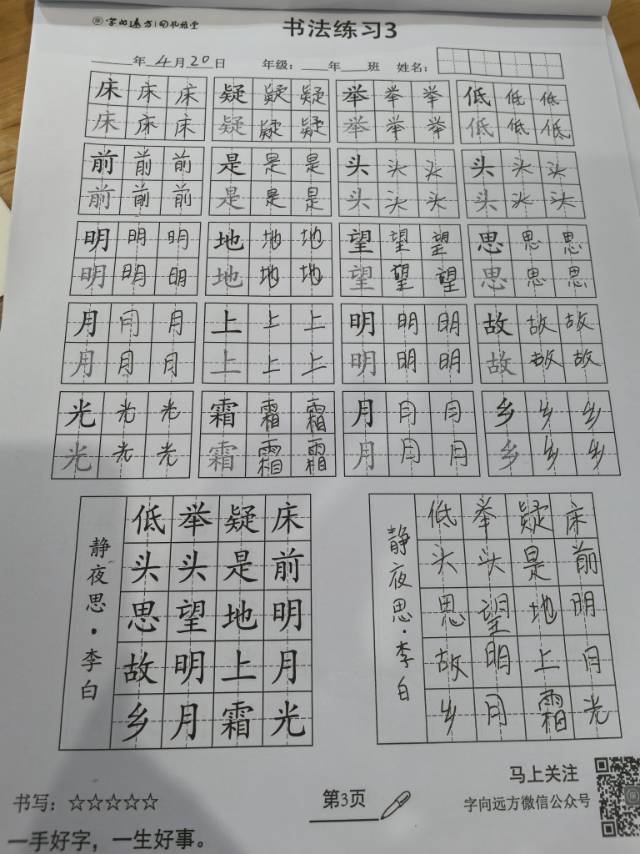 字向远方
书法练习3
____年 4 月 20 日 年级：____年____班 姓名：
床床床 疑疑疑 举举举 低低低
床床床 疑疑疑 举举举 低低低
前前前 是是是 头头头 头头头
前前前 是是是 头头头 头头头
明明明 地地地 望望望 思思思
明明明 地地地 望望望 思思思
月月月 上上上 明明明 故故故
月月月 上上上 明明明 故故故
光光光 霜霜霜 月月月 乡乡乡
光光光 霜霜霜 月月月 乡乡乡
床前明月光
疑是地上霜
举头望明月
低头思故乡
静夜思·李白
床前明月光
疑是地上霜
举头望明月
低头思故乡
静夜思·李白
书写：☆☆☆☆☆
一手好字，一生好事。
第3页
马上关注
字向远方微信公众号